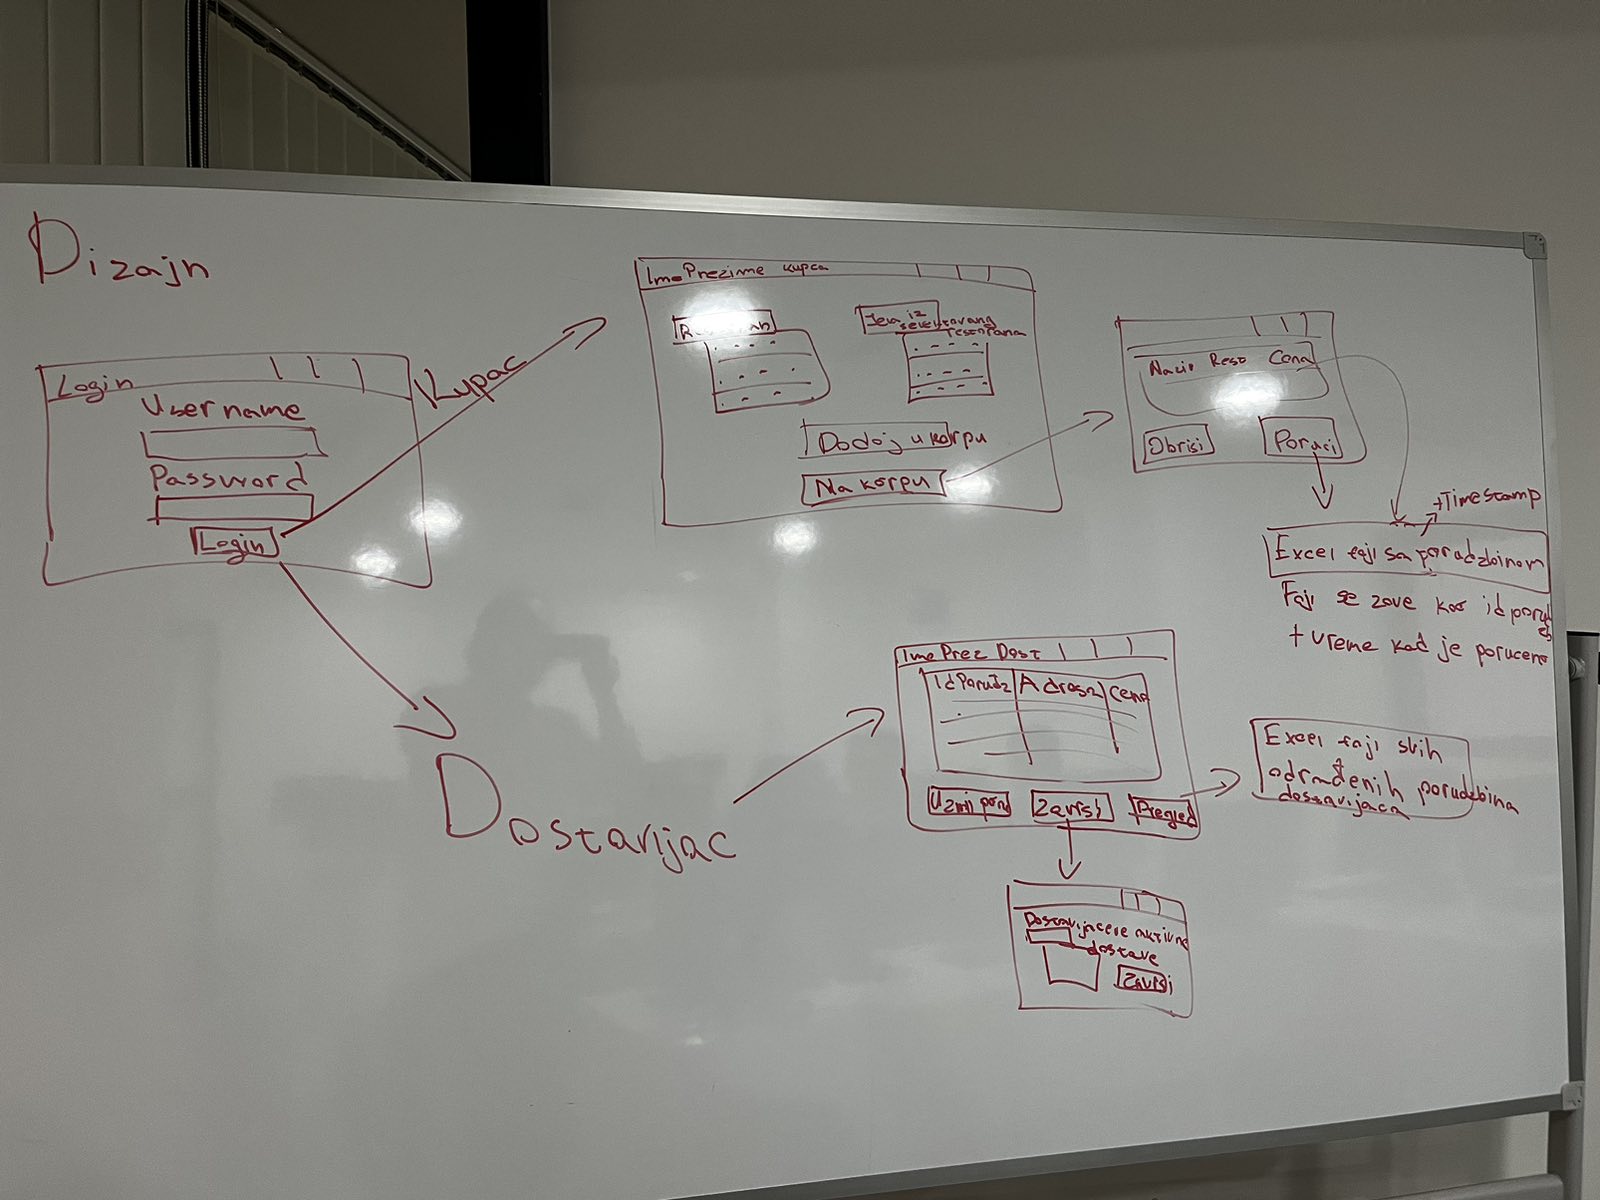 Dizajn
Login
Username
Password
Login
Kupac
Ime Prezime kupca
Jela iz
selektovanog
restorana
Dodaj u korpu
Na korpu
Naziv Rest Cena
Obrisi
Poruci
+Timestamp
Excel fajl sa porudzbinom
Fajl se zove kao id
+ vreme kad je poruceno
Dostavljac
Ime Prez Dost
Id Porudz Adresa Cena
Uzmi por
Zavrsi
Pregled
Excel fajl svih
odrađenih porudzbina
dostavljaca
Dostavljaceve aktivne
dostave
Zavrsi